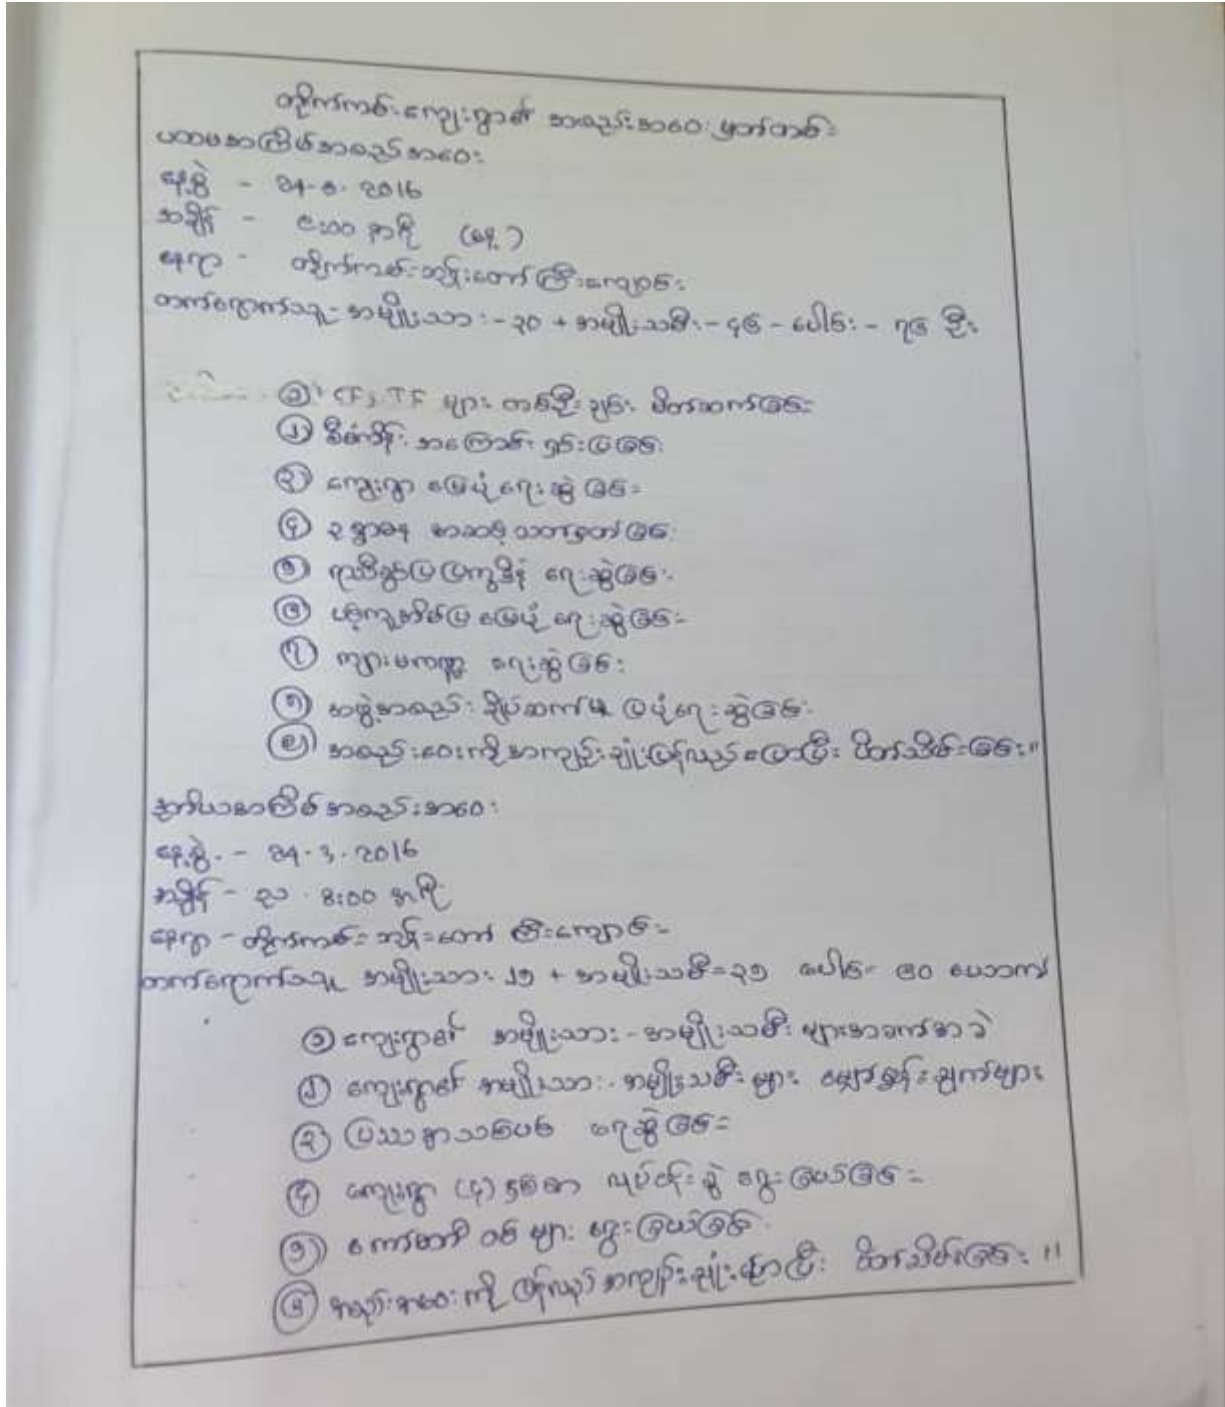 တိုက်ကမ်းကျေးရွာ၏ အစည်းအဝေး မှတ်တမ်း
ပထမအကြိမ်အစည်းအဝေး
နေ့စွဲ - 24-3-2016
အချိန် - ၉:၀၀ နာရီ (နေ့)
နေရာ - တိုက်ကမ်းဘုန်းတော်ကြီးကျောင်း
တက်ရောက်သူ - အမျိုးသား - ၃၀ + အမျိုးသမီး - ၄၆ - ပေါင်း - ၇၆ ဦး
၁ CF, TF များ တစ်ဦးချင်း မိတ်ဆက်ခြင်း
၂ စီမံကိန်း အကြောင်း ရှင်းပြခြင်း
၃ ကျေးရွာ မြေပုံ ရေးဆွဲခြင်း
၄ ဥစ္စာဓန အဆင့် သတ်မှတ်ခြင်း
၅ ရာသီခွင်ပြ ပြက္ခဒိန် ရေးဆွဲခြင်း
၆ ရေးဆွဲခြင်း
၇ ကျား၊မကဏ္ဍ ရေးဆွဲခြင်း
၈ အဖွဲ့အစည်း ချိပ်ဆက်မှု ပြပုံရေးဆွဲခြင်း
၉ အစည်းဝေးကို အကျဉ်းချုံးပြန်လည်ပြောပြီး ပိတ်သိမ်းခြင်း။
ဒုတိယအကြိမ်အစည်းအဝေး
နေ့စွဲ - 24.3.2016
အချိန် - ည 8:00 နာရီ
နေရာ - တိုက်ကမ်းဘုန်းတော်ကြီးကျောင်း
တက်ရောက်သူ အမျိုးသား ၂၅ + အမျိုးသမီး = ၃၅ ပေါင်း ၆၀ ယောက်
၁ ကျေးရွာ၏ အမျိုးသား - အမျိုးသမီး များအခက်အခဲ
၂ ကျေးရွာ၏ အမျိုးသား - အမျိုးသမီး များ မျှော်မှန်းချက်များ
၃ ပြဿနာသစ်ပင် ရေးဆွဲခြင်း
၄ ကျေးရွာ (၄) နှစ်စာ လုပ်ငန်းစဉ် ရွေးခြယ်ခြင်း
၅ ကော်မတီ ဝင်များ ရွေးခြယ်ခြင်း
၆ အစည်းအဝေးကို ပြန်လည်အကျဉ်းချုံးပြောပြီး ပိတ်သိမ်းခြင်း။